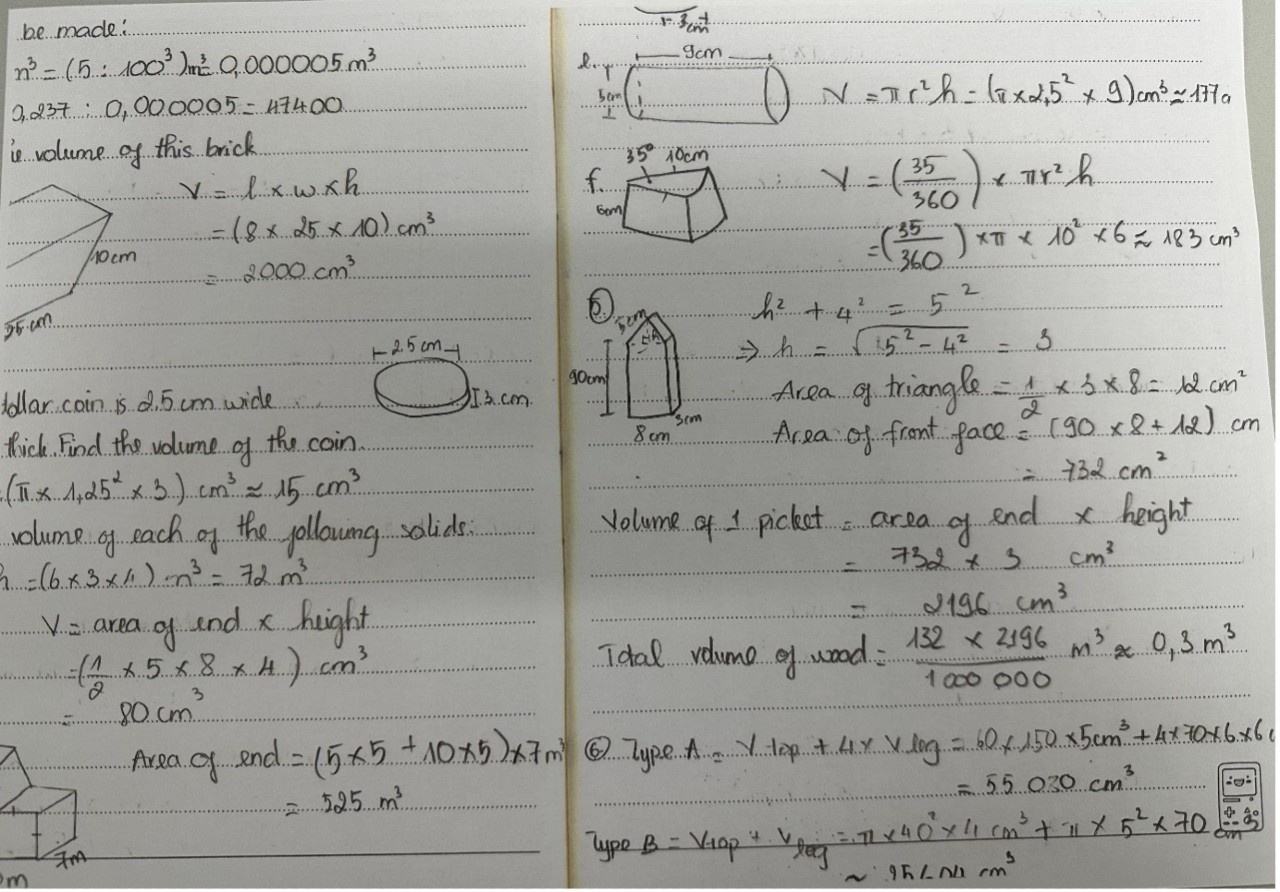 be made:
n³ = (5 : 100³)m³ = 0,000005 m³
0,237 : 0,000005 = 47400
volume of this brick
V = l × w × h
= (8 × 25 × 10) cm³
= 2000 cm³
10cm
25 cm
⊢ 2.5cm ⊣
dollar coin is 2.5 cm wide
3 cm
thick. Find the volume of the coin.
(π × 1,25² × 3) cm³ ≈ 15 cm³
volume of each of the following solids:
= (6 × 3 × 4) m³ = 72 m³
V = area of end × height
= (1/2 × 5 × 8 × 4) cm³
= 80 cm³
Area of end = (5×5 + 10×5)×7m³
= 525 m³
7m
m
3cm
e.
9cm
5cm
V = πr²h = (π×2,5² × 9)cm³ ≈ 177
f.
35° 10cm
6cm
V = (35/360) × πr²h
= (35/360) × π × 10² × 6 ≈ 183 cm³
5.
5cm
h
90cm
8cm
3cm
h² + 4² = 5²
⇒ h = √(5² − 4²) = 3
Area of triangle = 1/2 × 3 × 8 = 12 cm²
Area of front face = (90 × 8 + 12) cm
= 732 cm²
Volume of 1 picket = area of end × height
= 732 × 3 cm³
= 2196 cm³
Total volume of wood = 132 × 2196 / 1000 000 m³ ≈ 0,3 m³
⑥ Type A = V top + 4 × V leg = 60×150×5cm³ + 4×70×6×6
= 55 030 cm³
Type B = V top + V leg = π×40²×4 cm³ + π × 5² × 70 cm³
≈ cm³